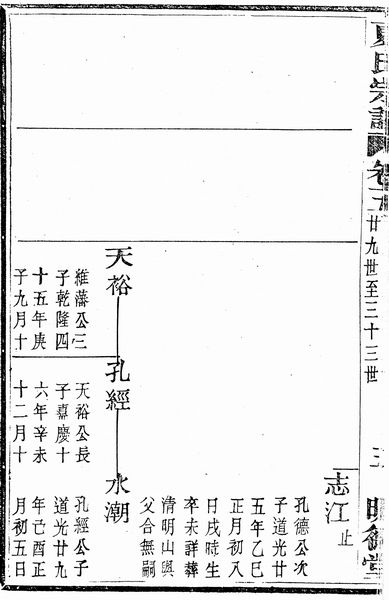 夏氏宗譜
卷二
廿九世至三十三世
三
明德堂
志江
止
孔德公次
子道光廿
五年乙巳
正月初八
日戌時生
卒未詳葬
清明山與
父合無嗣
天裕
孔經
水潮
維藩公三
子乾隆四
十五年庚
子九月十
天裕公長
子嘉慶十
六年辛未
十二月十
孔經公子
道光廿九
年己酉正
月初五日